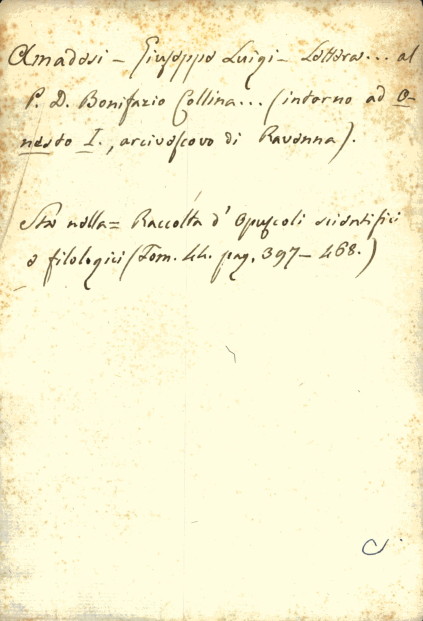 Amadesi – Giuseppe Luigi – Lettera... al
P. D. Bonifazio Collina... (intorno ad O-
nesto I., arcivescovo di Ravenna).
Sta nella = Raccolta d' Opuscoli scientifici
e filologici (Tom. 44. pag. 397 – 468.)